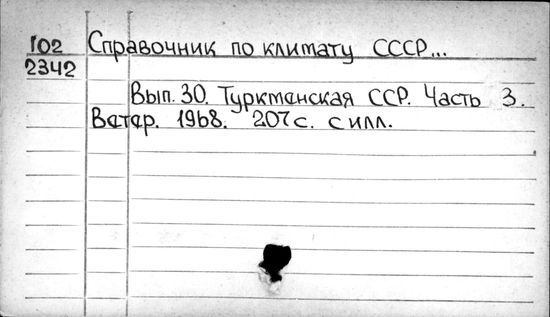 Г02 Справочник по климату СССР...
2342
Вып. 30. Туркменская ССР. Часть 3.
Ветер. 1968. 207 с. с илл.